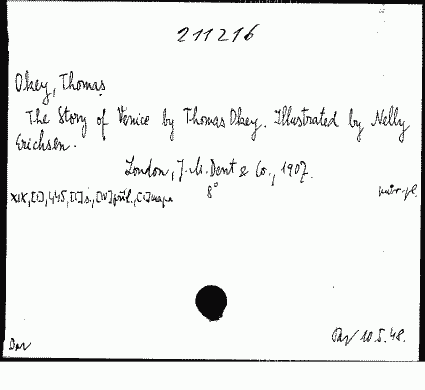 211216
Okey, Thomas
The Story of Venice by Thomas Okey. Illustrated by Nelly
Erichsen.
London, J. M. Dent & Co., 1907.
XIX, [I], 445, [I] s., [IV] příl., [I] mapa
8°
Dar
10.5.48.